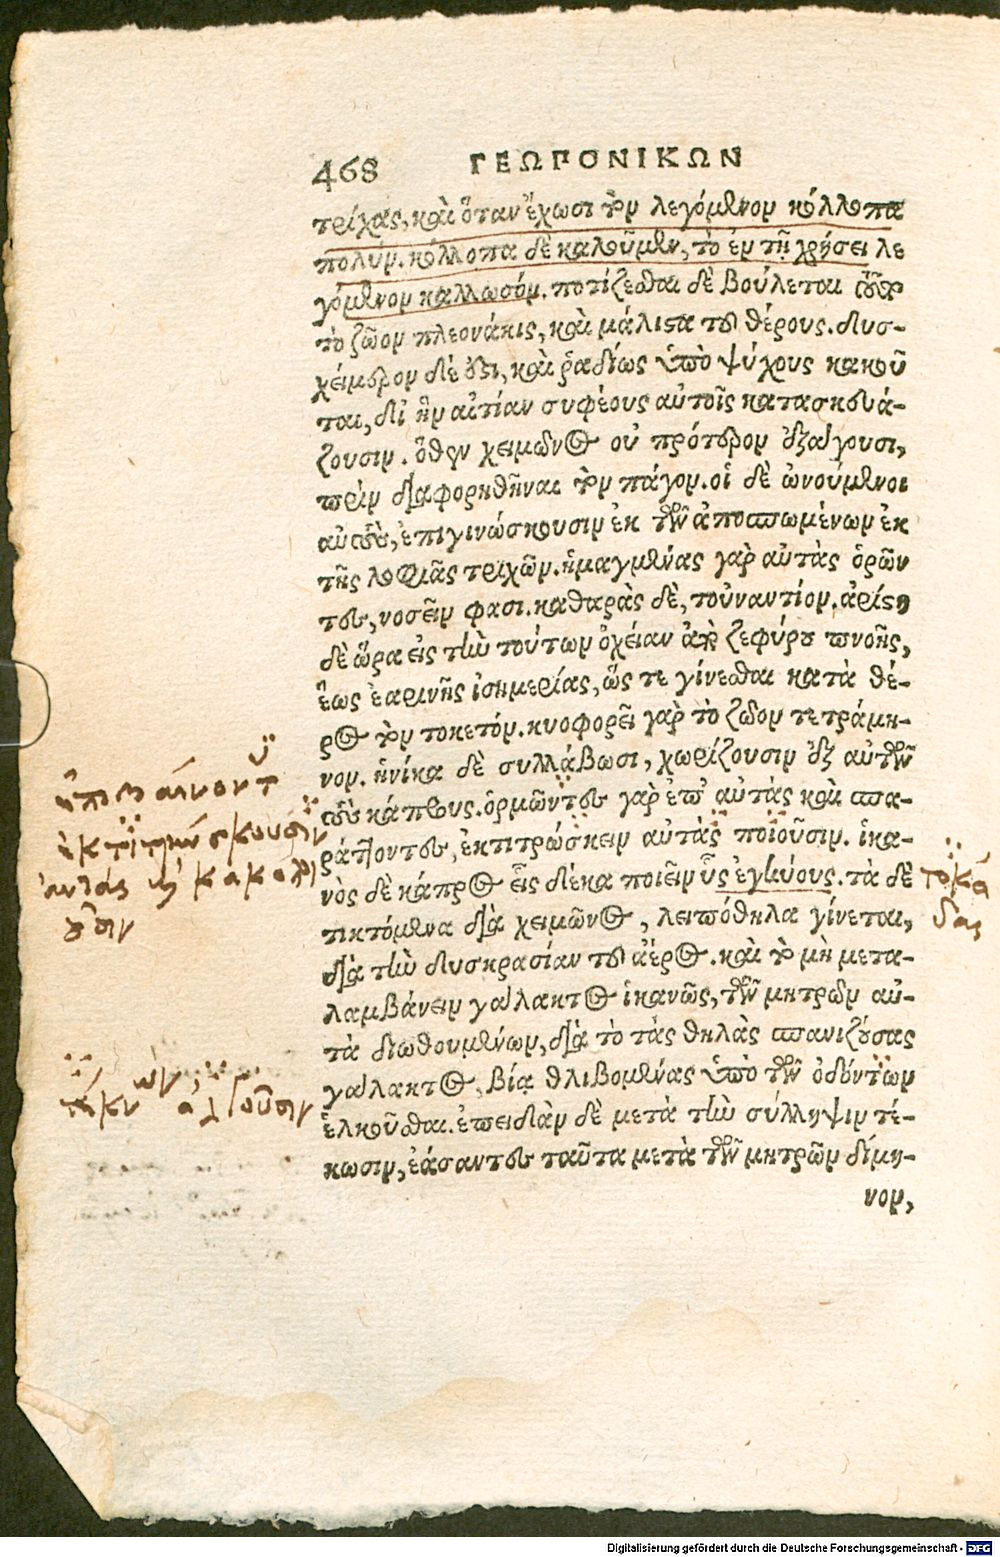 468 ΓΕΩΠΟΝΙΚΩΝ
τρίχας, καὶ ὅταν ἔχωσι τὸν λεγόμενον κόλλοπα
πολύν. κόλλοπα δὲ καλοῦμεν, τὸ ἐν τῇ χρήσει λε
γόμενον καλλωσόν. ποτίζεσθαι δὲ βούλεται
τὸ ζῶον πλεονάκις, καὶ μάλιστα τοῦ θέρους. δυσ-
χείμερον δέ ὅξι, καὶ ῥαδίως ὑπὸ ψύχους κακοῦ
ται, δι' ἣν αἰτίαν συφέους αὐτοῖς κατασκευά-
ζουσιν. ὅθεν χειμῶνος οὐ πρότερον ἐξάγουσι,
πρὶν διαφορηθῆναι τὸν πάγον. οἱ δὲ ὠνούμενοι
αὐτοὺς, ἐπιγινώσκουσιν ἐκ τῶν ἀποσπωμένων ἐκ
τῆς λοφιᾶς τριχῶν. ἡμαγμένας γὰρ αὐτὰς ὁρῶν
τες, νοσεῖν φασι. καθαρὰς δὲ, τοὐναντίον. ἀρίστη
δὲ ὥρα εἰς τὴν τούτων ὀχείαν ἀπὸ ζεφύρου πνοῆς,
ἕως ἐαρινῆς ἰσημερίας, ὥς τε γίνεσθαι κατὰ θέ-
ρος τὸν τοκετόν. κυοφορεῖ γὰρ τὸ ζῶον τετράμη-
νον. ἡνίκα δὲ συλλάβωσι, χωρίζουσιν ἐξ αὐτῶν
τοὺς κάπρους. ὁρμῶντες γὰρ ἐπ' αὐτὰς καὶ σπα-
ράττοντες, ἐκτιτρώσκειν αὐτὰς ποιοῦσιν. ἱκα-
νὸς δὲ κάπρος εἷς δέκα ποιεῖν ὗς ἐγκύους. τὰ δὲ
τικτόμενα διὰ χειμῶνος, λειπόθηλα γίνεται,
διὰ τὴν δυσκρασίαν τοῦ ἀέρος. καὶ τὸ μὴ μετα-
λαμβάνειν γάλακτος ἱκανῶς, τῶν μητρῶν αὐ-
τὰ διωθουμένων, διὰ τὸ τὰς θηλὰς σπανιζούσας
γάλακτος, βίᾳ θλιβομένας ὑπὸ τῶν ὀδόντων
ἑλκοῦσθαι. ἐπειδὰν δὲ μετὰ τὴν σύλληψιν τέ-
κωσιν, ἐάσαντες ταῦτα μετὰ τῶν μητρῶν δίμη-
νον,
τοκά
δας
Digitalisierung gefördert durch die Deutsche Forschungsgemeinschaft - DFG